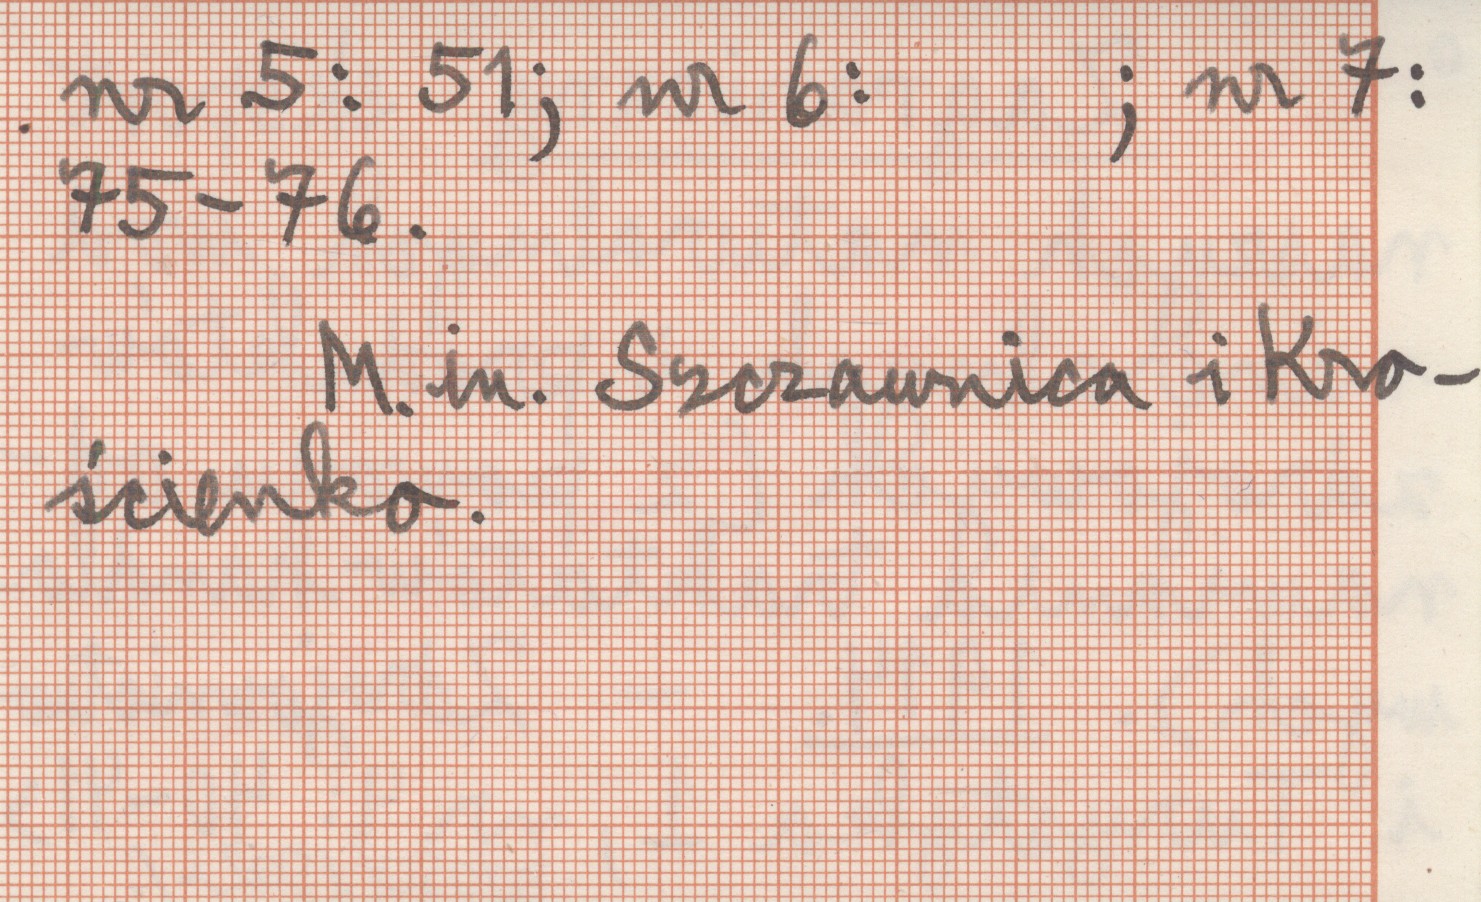 nr 5: 51; nr 6: ; nr 7:
75-76.
M.in. Szczawnica i Kro-
ścienko.